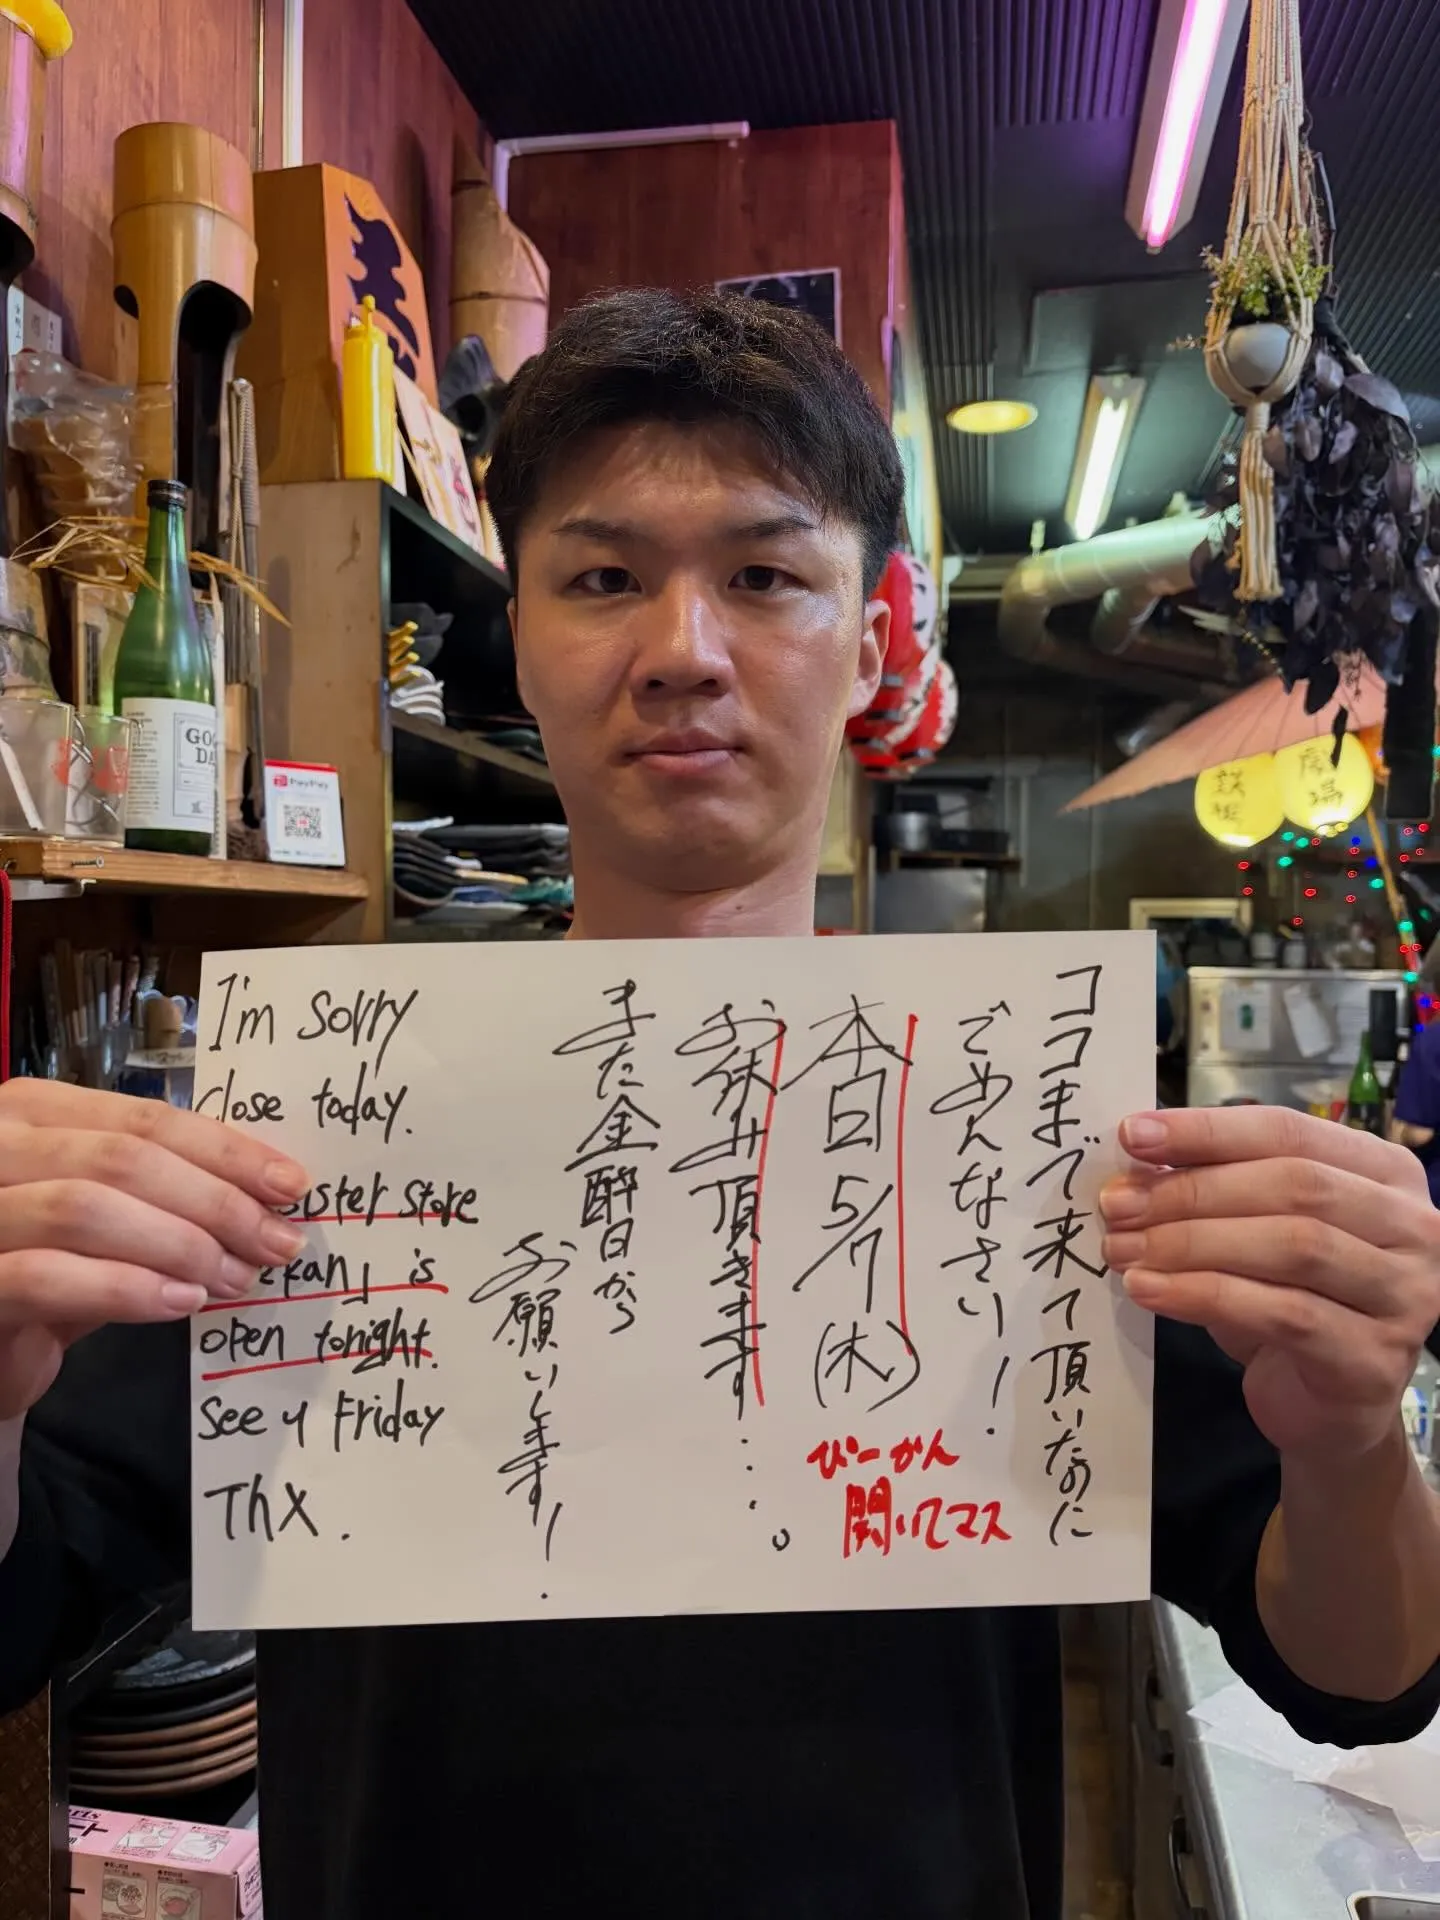 ココまで来て頂いたのに
でめんなさい!
本日5/7(木)
ぴーかん
開いてマス
お休み頂きます…。
また金酔日から
お願いします!
I'm sorry
Close today.
sister store
kan」 is
open tonight.
See y Friday
Thx.
GOO
DA
PayPay
劇場